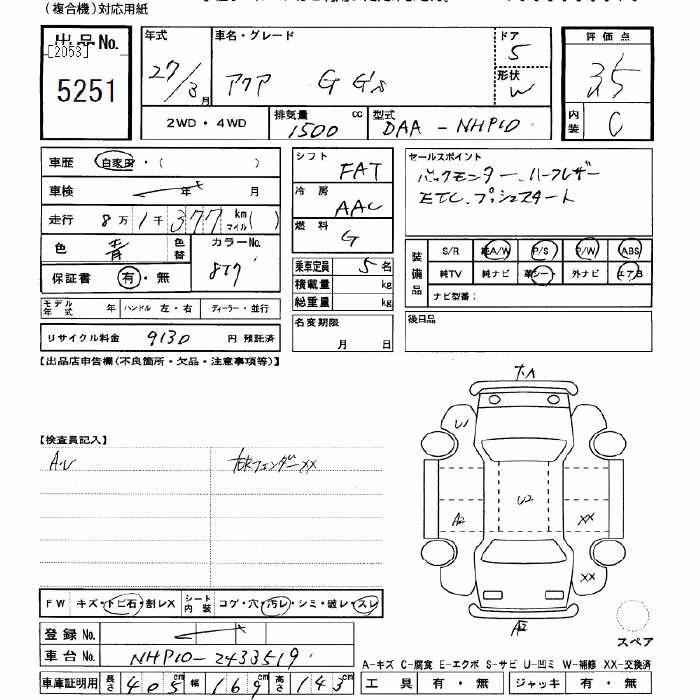 (複合機)対応用紙
出品No.
[2053]
5251
年式
27/3月
車名・グレード
アクア G G's
ドア
5
形状
W
評価点
3.5
内装
C
2WD・4WD
排気量
1500
cc
型式
DAA-NHP10
車歴
自家用・( )
車検
年 月
走行
8万1千377km
マイル( )
色
青
色替
カラーNo.
8T7
保証書
有・無
モデル年式
年
ハンドル 左・右
ディーラー・並行
リサイクル料金
9130
円 預託済
シフト
FAT
冷房
AAC
燃料
G
乗車定員
5名
積載量
kg
総重量
kg
名変期限
月 日
セールスポイント
バックモニター、ハーフレザー
ETC、プッシュスタート
装備品
S/R
純A/W
P/S
P/W
ABS
純TV
純ナビ
革シート
外ナビ
エアB
ナビ型番:
後日品
【出品店申告欄(不良箇所・欠品・注意事項等)】
【検査員記入】
A.U
フェンダーXX
A
U1
A2
U2
XX
XX
A2
スペア
FW
キズ・トビ石・割レX
シート内装
コゲ・穴・汚レ・シミ・破レ・スレ
登録No.
車台No.
NHP10-2433519
車庫証明用
長さ
405cm
幅
169cm
高さ
143cm
A-キズ C-腐食 E-エクボ S-サビ U-凹ミ W-補修 XX-交換済
工具
有・無
ジャッキ
有・無